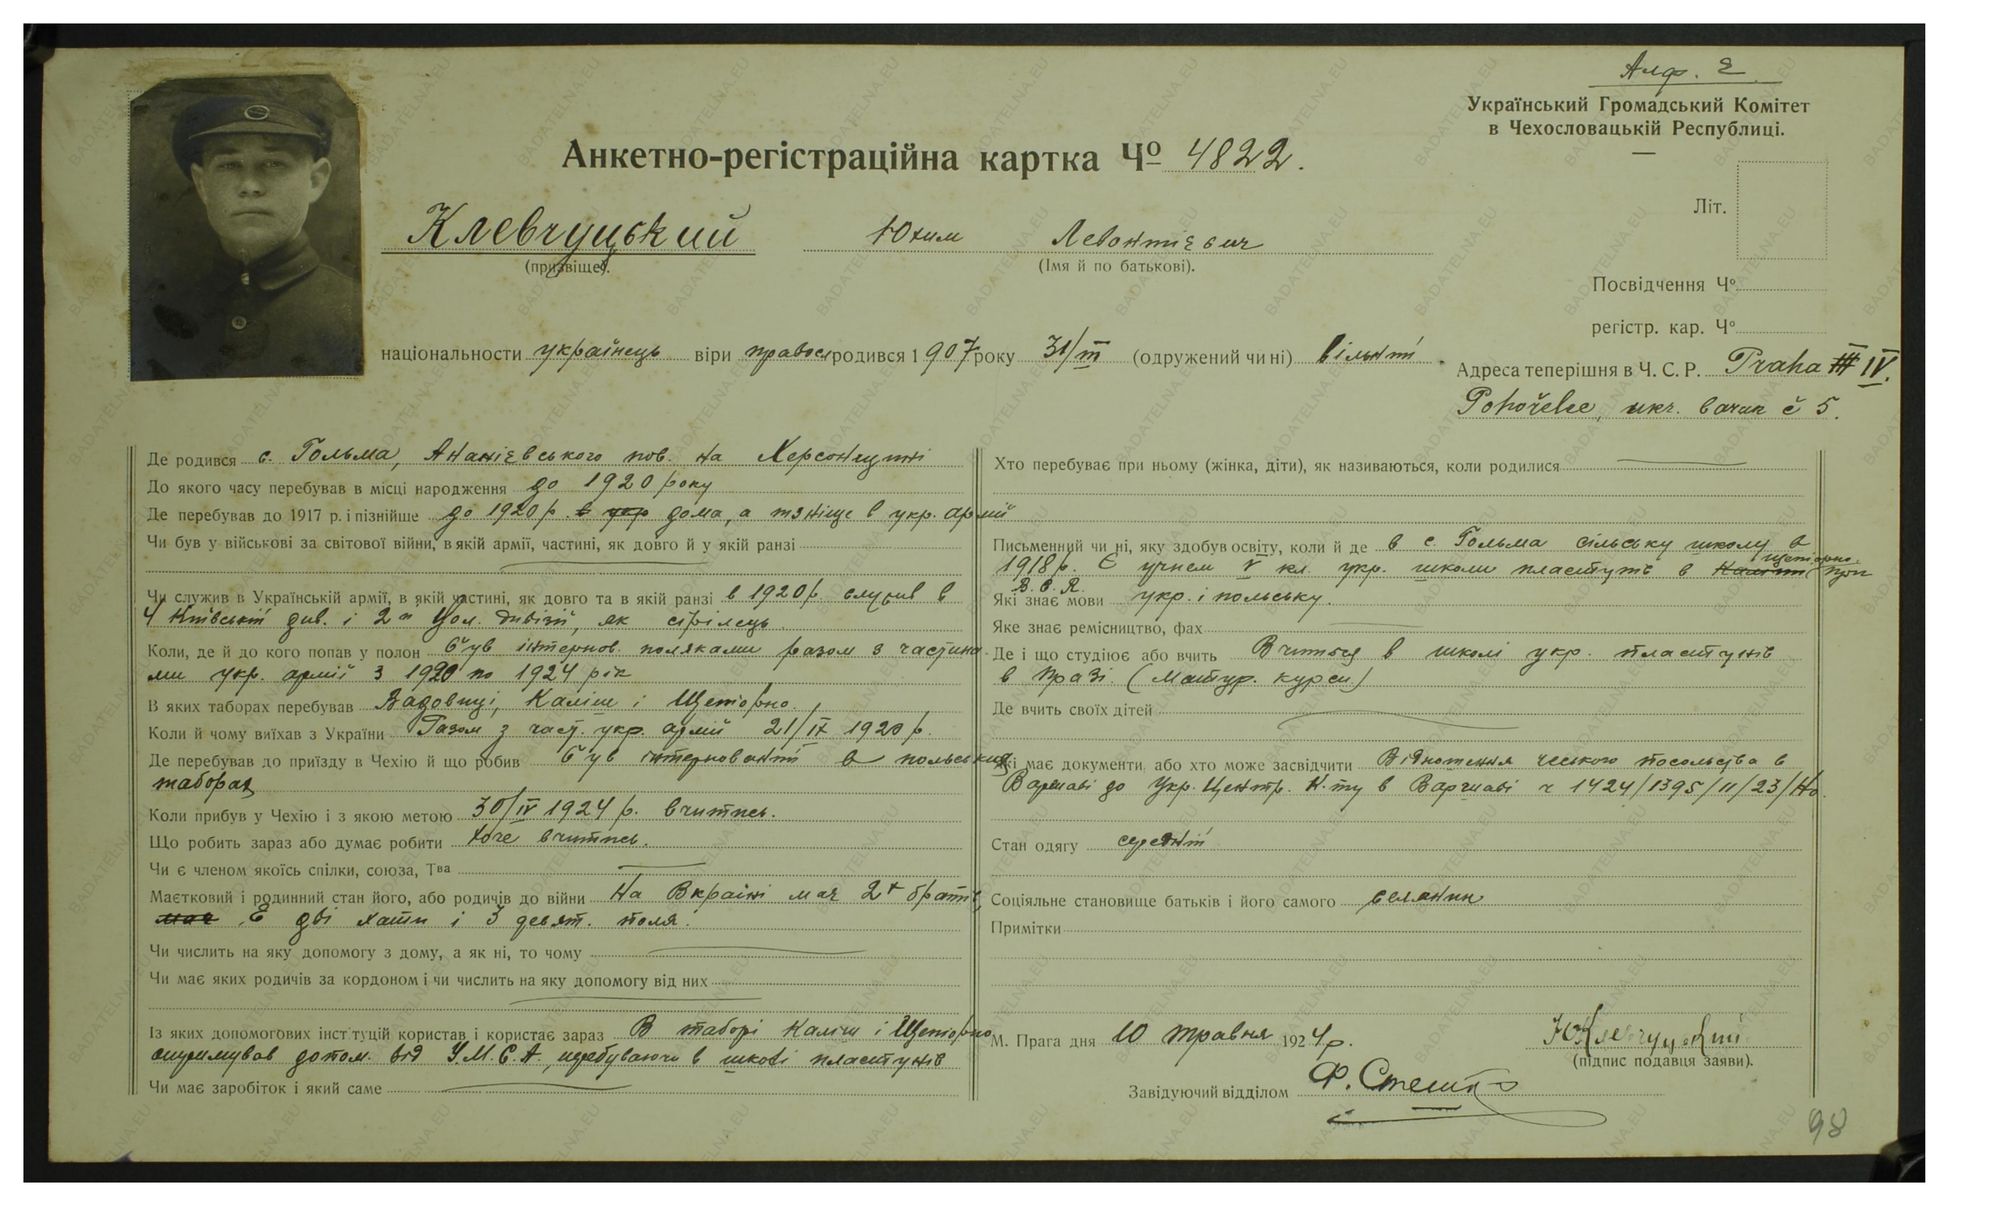 Алф. Е
Український Громадський Комітет
в Чехословацькій Республиці.
Анкетно-регістраційна картка Чо 4822.
Літ.
Клевчуцький Юхим Левонтієвич
(призвіще). (Імя й по батькові).
Посвідчення Чо
регістр. кар. Чо
національности українець віри правосл родився 1907 року 31/III (одружений чи ні) вільний
Адреса теперішня в Ч. С. Р. Praha III IV.
Pohořelec, укр. барак č 5.
Де родився с. Гольма, Ананієвського пов. на Херсонщині
До якого часу перебував в місці народження до 1920 року
Де перебував до 1917 р. і пізнійше до 1920 р. в укр дома, а пізніще в укр. армії
Чи був у військові за світової війни, в якій армії, частині, як довго й у якій ранзі
Чи служив в Українській армії, в якій частині, як довго та в якій ранзі в 1920 р. служив в
4 Київській див. і 2й Вол. дивізії, як стрілець
Коли, де й до кого попав у полон був інтернов. поляками разом з частина-
ми укр. армії з 1920 по 1924 рік
В яких таборах перебував Вадовиці, Каліш і Щепіорно.
Коли й чому виїхав з України Разом з част. укр. армії 21/IX 1920 р.
Де перебував до приїзду в Чехію й що робив був інтернований в польських
таборах
Коли прибув у Чехію і з якою метою 30/IV 1924 р. вчитись.
Що робить зараз або думає робити хоче вчитись.
Чи є членом якоїсь спілки, союза, Тва
Маєтковий і родинний стан його, або родичів до війни На Вкраїні має 2х братів,
має Є дві хати і 3 десят. поля.
Чи числить на яку допомогу з дому, а як ні, то чому
Чи має яких родичів за кордоном і чи числить на яку допомогу від них
Із яких допомогових інституцій користав і користає зараз В таборі Каліш і Щепіорно
отримував допом. від У.М.С.А., перебуваючи в школі пластунів
Чи має заробіток і який саме
Хто перебуває при ньому (жінка, діти), як називаються, коли родилися
Письменний чи ні, яку здобув освіту, коли й де в с. Гольма сільську школу в
1918 р. Є учнем V кл. укр. школи пластунів в Каліші Щепіорно. при
Які знає мови укр. і польську.
Яке знає ремісництво, фах
Де і що студіює або вчить Вчиться в школі укр. пластунів
в Празі. (Матур. курси)
Де вчить своїх дітей
Які має документи, або хто може засвідчити Відношення чеського посольства в
Варшаві до Укр. Центр. К-ту в Варшаві ч 1424/1395/II/23/Но.
Стан одягу середній
Соціяльне становище батьків і його самого селянин
Примітки
М. Прага дня 10 травня 1924 р. ЮКлевчуцький
(підпис подавця заяви).
Завідуючий відділом Ф. Стешко
98